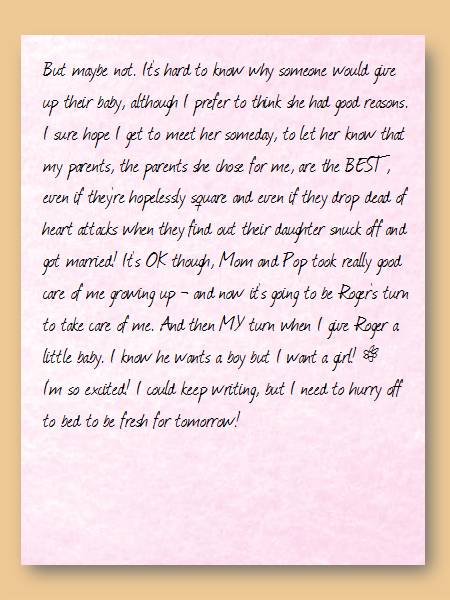 But maybe not. It's hard to know why someone would give
up their baby, although I prefer to think she had good reasons.
I sure hope I get to meet her someday, to let her know that
my parents, the parents she chose for me, are the BEST,
even if they're hopelessly square and even if they drop dead of
heart attacks when they find out their daughter snuck off and
got married! It's OK though, Mom and Pop took really good
care of me growing up - and now it's going to be Roger's turn
to take care of me. And then MY turn when I give Roger a
little baby. I know he wants a boy but I want a girl!
I'm so excited! I could keep writing, but I need to hurry off
to bed to be fresh for tomorrow!